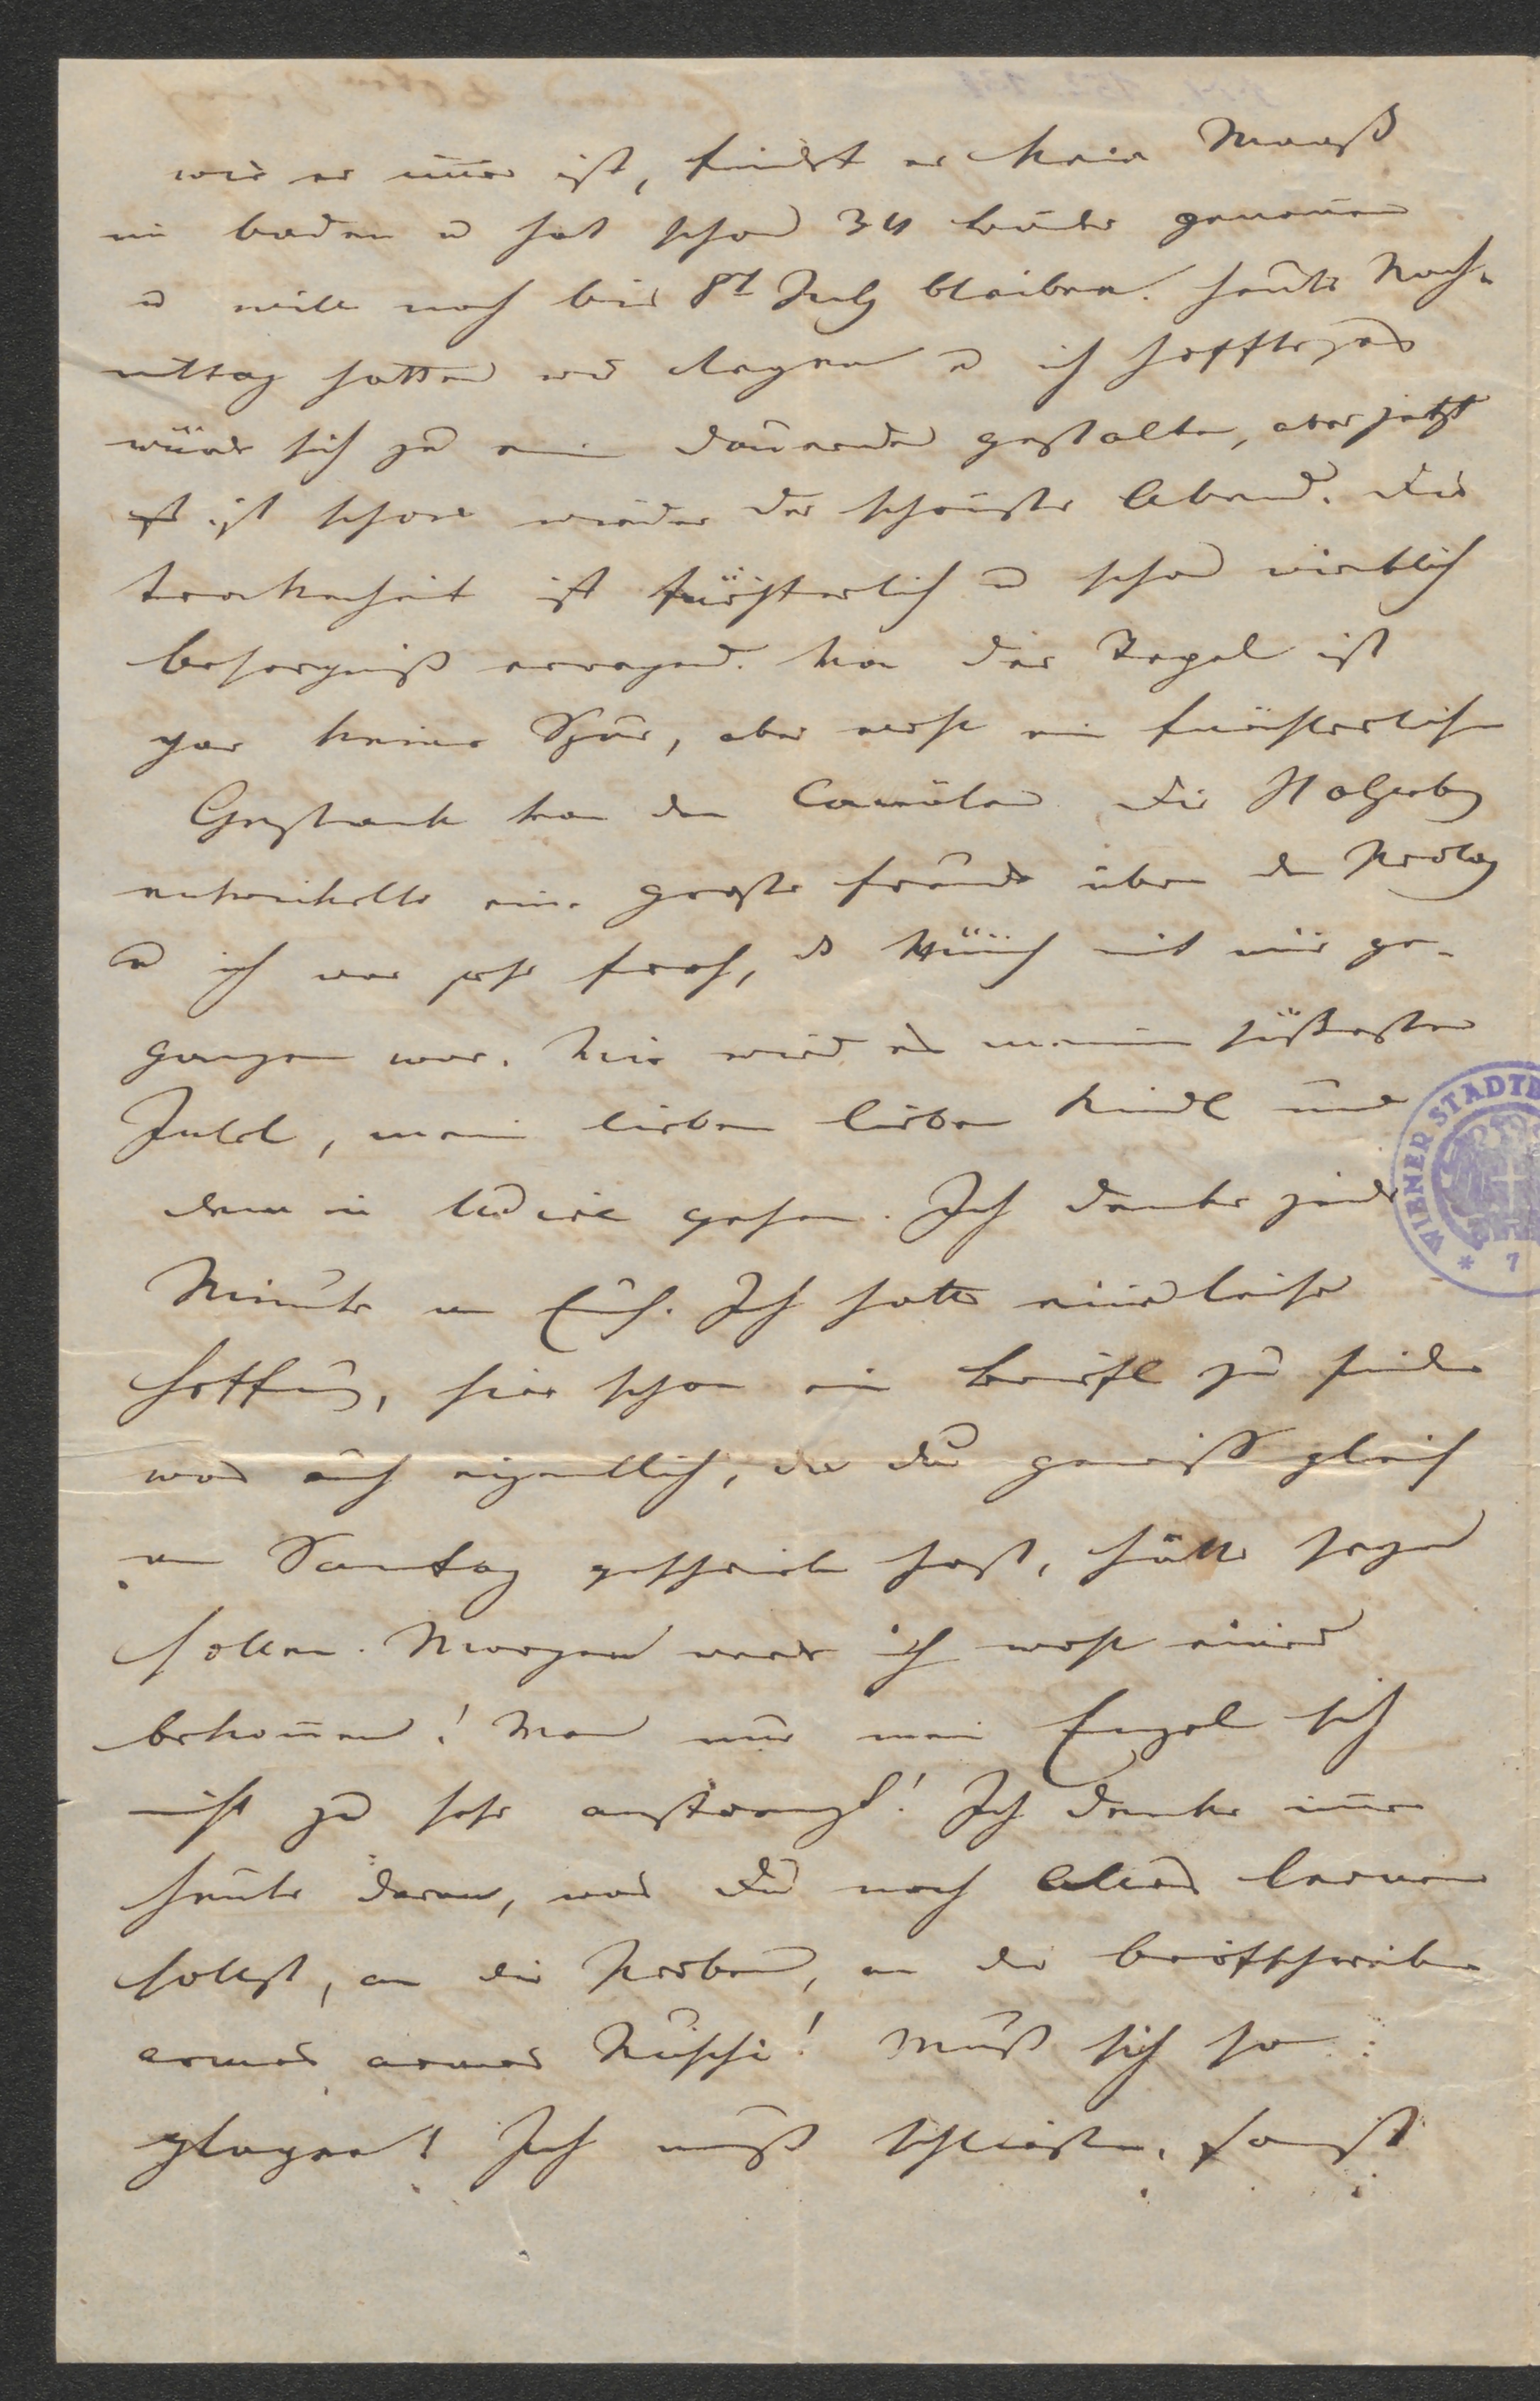 wie er immer ist, findet er kein Maaß
im baden u hat schon 34 bäder genommen
u will noch bis 8t July bleiben. heute Nach-
mittag hatten wir Regen u ich hoffte er
würde sich zu ein dauernden gestalten, aber jetzt
ist schon wieder der schönste Abend. die
trockenheit ist fürchterlich u schon wirklich
besorgniß erregend. von der Kegel ist
gar keine Spur, aber mehr ein fürchterlicher
Gestank von den Canälen. die Holzerby
entwickelte eine große freude über den
u ich war sehr froh, daß Münch mit mir ge-
gangen war. wie wird es meinem süßesten
Juckl, mein lieben lieben kindl und
denn in gehen. Ich denke jede
Minute an Euch. Ich hatte eine leise
hoffnung, hier schon ein briefl zu finden
was auch eigentlich, da du gewiß gleich
am Sonntag geschrieben hast, hätte seyn
sollen. Morgen werde ich wohl einen
bekommen! Wenn nur mein Engel sich
nicht zu sehr anstrengt! Ich denke immer
heute daran, was du noch Alles lernen
sollst, an die Proben, an die briefschreiben
armes armes Muschi! Muß sich so
plagen! Ich muß schließen, sonst
WIENER STADTB
* 7